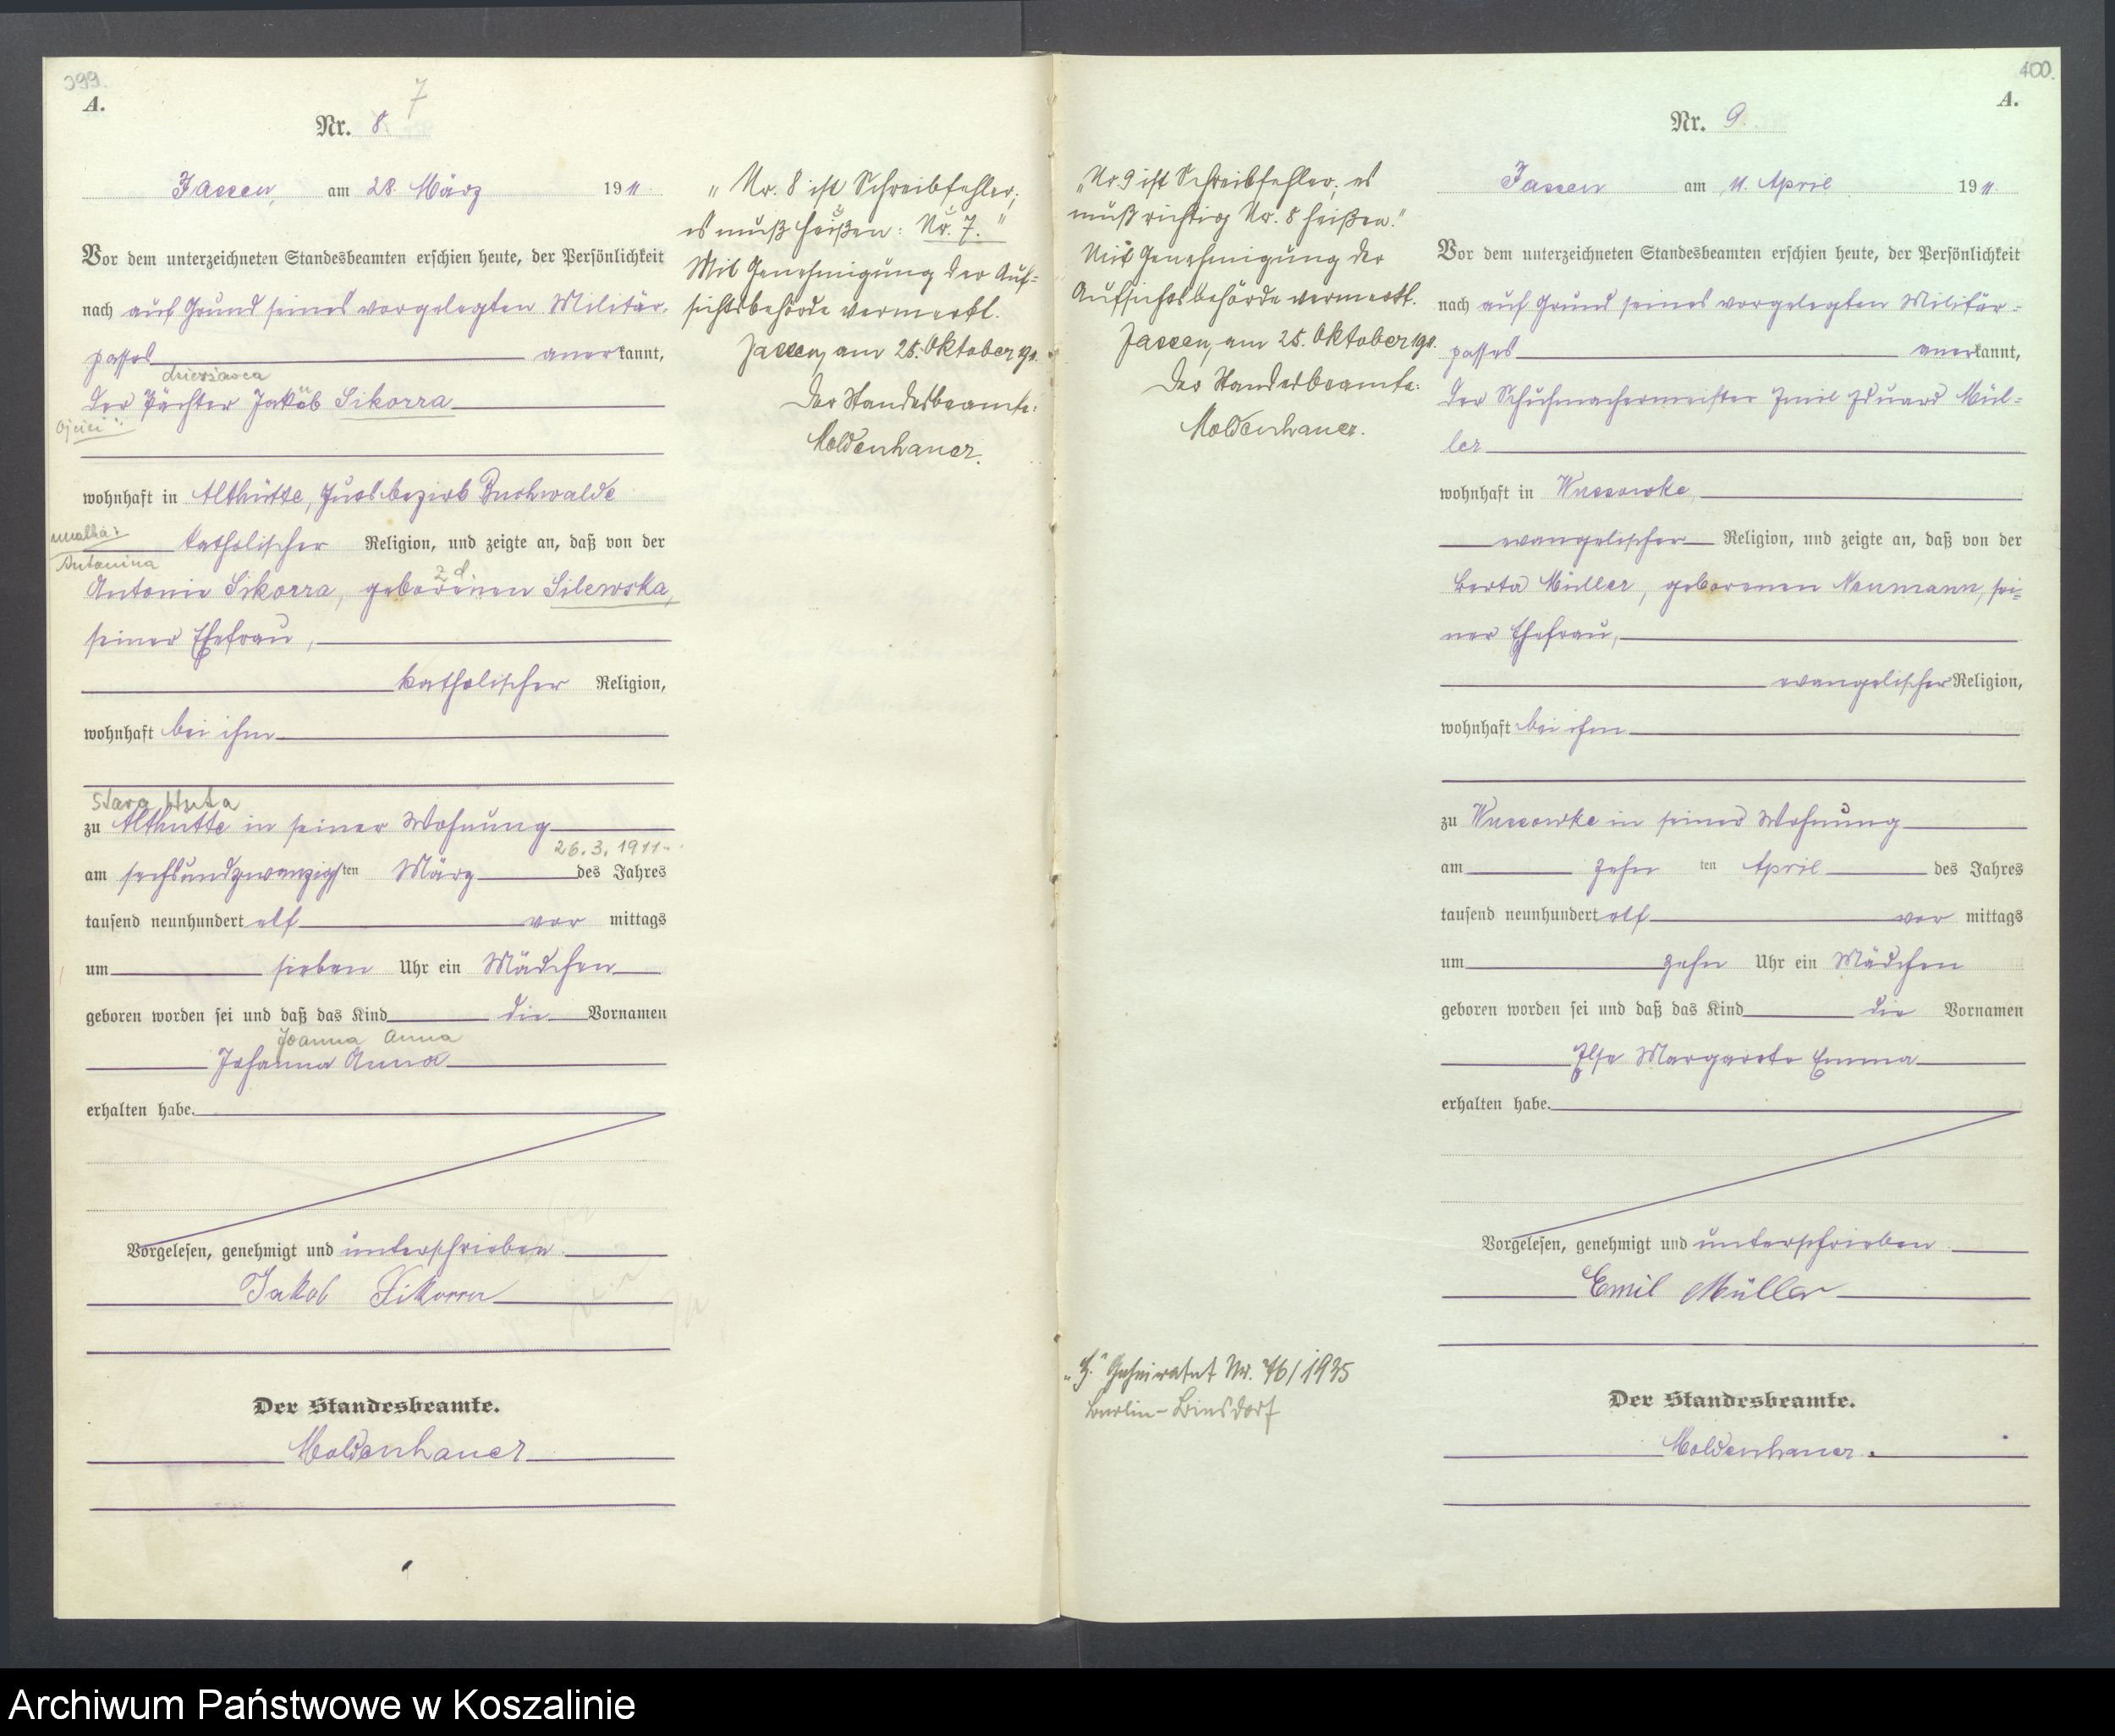 399.
A.
7
Nr. 8
Jassen, am 28. März 1911.
Vor dem unterzeichneten Standesbeamten erschien heute, der Persönlichkeit
nach auf Grund seines vorgelegten Militär-
passes anerkannt,
dzierżawca
der Pächter Jakob Sikorra
ojciec:
wohnhaft in Althütte, Gutsbezirk Buchwalde
matka:
katholischer Religion, und zeigte an, daß von der
Antonina
Antonie Sikorra, geborenen Silewska,
seiner Ehefrau,
katholischer Religion,
wohnhaft bei ihm
Stara Huta
zu Althütte in seiner Wohnung
26.3.1911
am sechsundzwanzigsten März des Jahres
tausend neunhundert elf vor mittags
um sieben Uhr ein Mädchen
geboren worden sei und daß das Kind die Vornamen
Joanna Anna
Johanna Anna
erhalten habe.
Vorgelesen, genehmigt und unterschrieben
Jakob Sikorra
Der Standesbeamte.
Moldenhauer
„Nr. 8 ist Schreibfehler;
es muß heißen: Nr. 7."
Mit Genehmigung der Auf-
sichtsbehörde vermerkt.
Jassen, am 25. Oktober 1911.
Der Standesbeamte:
Moldenhauer.
„Nr 9 ist Schreibfehler; es
muß richtig Nr. 8 heißen."
Mit Genehmigung der
Aufsichtsbehörde vermerkt.
Jassen, am 25. Oktober 1911.
Der Standesbeamte:
Moldenhauer.
„H." Geheiratet Nr. 76/1935
Berlin-
400.
A.
Nr. 9.
Jassen am 11. April 1911
Vor dem unterzeichneten Standesbeamten erschien heute, der Persönlichkeit
nach auf Grund seines vorgelegten Militär-
passes anerkannt,
der Schuhmachermeister Emil Eduard Mül-
ler
wohnhaft in Wussowke
evangelischer Religion, und zeigte an, daß von der
Berta Müller, geborenen Neumann, sei-
ner Ehefrau,
evangelischer Religion,
wohnhaft bei ihm
zu Wussowke in seiner Wohnung
am zehn ten April des Jahres
tausend neunhundert elf vor mittags
um zehn Uhr ein Mädchen
geboren worden sei und daß das Kind die Vornamen
Ilse Margarete Emma
erhalten habe.
Vorgelesen, genehmigt und unterschrieben.
Emil Müller
Der Standesbeamte.
Moldenhauer.
Archiwum Państwowe w Koszalinie